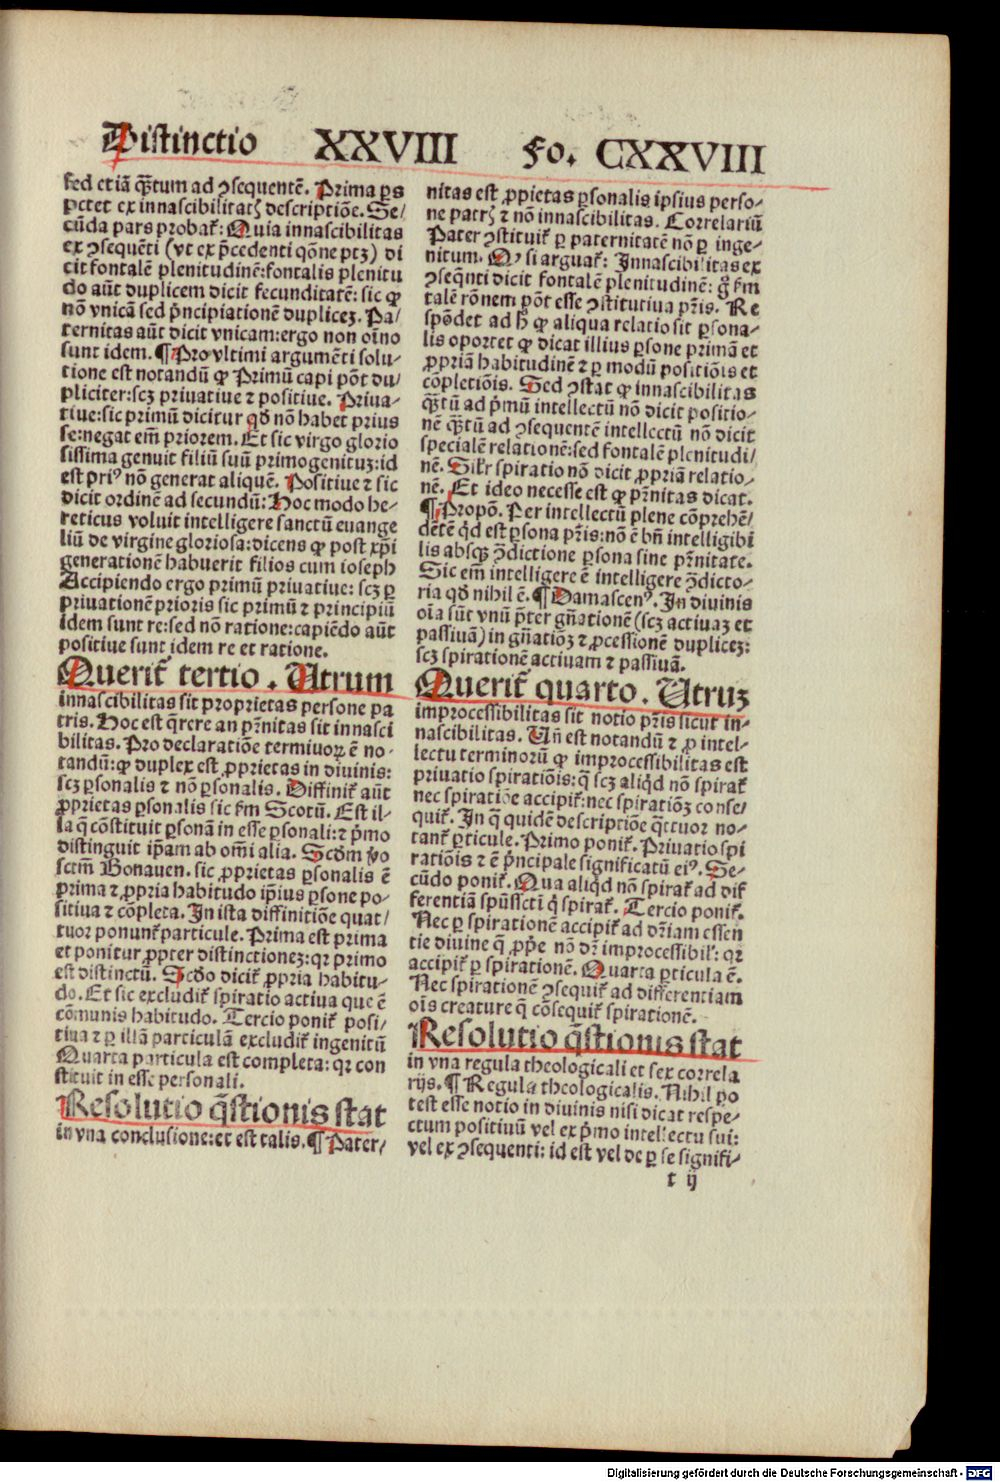 Distinctio XXVIII Fo. CXXVIII
sed etiā q̄tum ad ꝯsequentē. Prima ꝑs
ptet ex innascibilitatꝭ descriptiōe. Se/
cūda pars probat᷑: Quia innascibilitas
ex ꝯsequēti (vt ex p̄cedenti qōne ptꝫ) di
cit fontalē plenitudinē: fontalis plenitu
do aūt duplicem dicit fecunditatē: sic ꝙ
nō vnicā sed p̄ncipiationē duplicez. Pa/
ternitas aūt dicit vnicam: ergo non oīno
sunt idem. ¶ Pro vltimi argumēti solu/
tione est notandū ꝙ Primū capi pōt du/
pliciter: scꝫ priuatiue ⁊ positiue. Priua/
tiue: sic primū dicitur qđ nō habet prius
se: negat em̄ priorem. Et sic virgo glorio
sissima genuit filiū suū primogenituꝫ: id
est priꝰ nō generat aliquē. Positiue ⁊ sic
dicit ordinē ad secundū: Hoc modo he/
reticus voluit intelligere sanctū euange
liū de virgine gloriosa: dicens ꝙ post xp̄i
generationē habuerit filios cum ioseph
Accipiendo ergo primū priuatiue: scꝫ ꝑ
priuationē prioris sic primū ⁊ principiū
idem sunt re: sed nō ratione: capiēdo aūt
positiue sunt idem re et ratione.
Querit᷑ tertio. Utrum
innascibilitas sit proprietas persone pa
tris. Hoc est q̄rere an pr̄nitas sit innasci
bilitas. Pro declaratiōe terminoꝝ ē no/
tandū: ꝙ duplex est ꝓprietas in diuinis:
scꝫ ꝑsonalis ⁊ nō ꝑsonalis. Diffinit᷑ aūt
ꝓprietas ꝑsonalis sic ẜm Scotū. Est il/
la q̄ cōstituit ꝑsonā in esse ꝑsonali: ⁊ p̄mo
distinguit ip̄am ab om̄i alia. Scđm ꝟo
sctm̄ Bonauen. sic ꝓprietas ꝑsonalis ē
prima ⁊ ꝓpria habitudo ip̄ius ꝑsone po/
sitiua ⁊ cōpleta. In ista diffinitiōe quat/
tuor ponunt᷑ particule. Prima est prima
et ponitur ꝓpter distinctionez: qꝛ primo
est distinctū. Scđo dicit᷑ ꝓpria habitu/
do. Et sic excludit᷑ spiratio actiua que ē
cōmunis habitudo. Tercio ponit᷑ posi/
tiua ⁊ ꝑ illā particulā excludit᷑ ingenitū
Quarta particula est completa: qꝛ con
stituit in esse personali.
Resolutio q̄stionis stat
in vna conclusione: et est talis. ¶ Pater/
nitas est ꝓprietas ꝑsonalis ipsius perso/
ne patrꝭ ⁊ nō innascibilitas. Correlariū
Pater ꝯstituit᷑ ꝑ paternitatē nō ꝑ inge/
nitum. Qꝫ si arguat᷑: Innascibilitas ex
ꝯseq̄nti dicit fontalē plenitudinē: gͦ ẜm
talē rōnem pōt esse ꝯstitutiua pr̄is. Re
spōdet ad ħ ꝙ aliqua relatio sit ꝑsona/
lis oportet ꝙ dicat illius ꝑsone primā et
ꝓpriā habitudinē ⁊ ꝑ modū positiōis et
cōpletiōis. Sed ꝯstat ꝙ innascibilitas
q̄tū ad p̄mū intellectū nō dicit positio/
nē q̄tū ad ꝯsequentē intellectū nō dicit
specialē relationē: sed fontalē plenitudi/
nē. Silr̄ spiratio nō dicit ꝓpriā relatio/
nē. Et ideo necesse est ꝙ pr̄nitas dicat.
¶ Propō. Per intellectū plene cōprehē/
dētē qd̄ est ꝑsona pr̄is: nō ē bn̄ intelligibi
lis absqꝫ ꝯdictione ꝑsona sine pr̄nitate.
Sic em̄ intelligere ē intelligere ꝯdicto/
ria qđ nihil ē. ¶ Damascenꝰ. In diuinis
oīa sūt vnū p̄ter gn̄ationē (scꝫ actiuaꝫ et
passiuā) in gn̄atiōꝫ ⁊ ꝓcessionē duplicez:
scꝫ spirationē actiuam ⁊ passiuā.
Querit᷑ quarto. Utruꝫ
improcessibilitas sit notio pr̄is sicut in/
nascibilitas. Un̄ est notandū ⁊ ꝓ intel/
lectu terminorū ꝙ improcessibilitas est
priuatio spiratiōis: q̄ scꝫ aliqd̄ nō spirat᷑
nec spiratiōe accipit᷑: nec spiratiōꝫ conse/
quit᷑. In q̄ quidē descriptiōe q̄ttuor no/
tant᷑ ꝑticule. Primo ponit᷑. Priuatio spi
ratiōis ⁊ ē p̄ncipale significatū eiꝰ. Se/
cūdo ponit᷑. Qua aliqd̄ nō spirat᷑ ad dif
ferentiā spūssctī q̄ spirat᷑. Tercio ponit᷑.
Nec ꝑ spirationē accipit᷑ ad dr̄iam essen
tie diuine q̄ ꝓp̄e nō dr̄ improcessibil᷑: qꝛ
accipit᷑ ꝑ spirationē. Quarta ꝑticula ē.
Nec spirationē ꝯsequit᷑ ad differentiam
oīs creature q̄ cōsequit᷑ spirationē.
Resolutio q̄stionis stat
in vna regula theologicali et sex correla
rijs. ¶ Regula theologicalis. Nihil po
test esse notio in diuinis nisi dicat respe/
ctum positiuū vel ex p̄mo intellectu sui:
vel ex ꝯsequenti: id est vel de ꝑ se signifi/
t ij
Digitalisierung gefördert durch die Deutsche Forschungsgemeinschaft - DFG